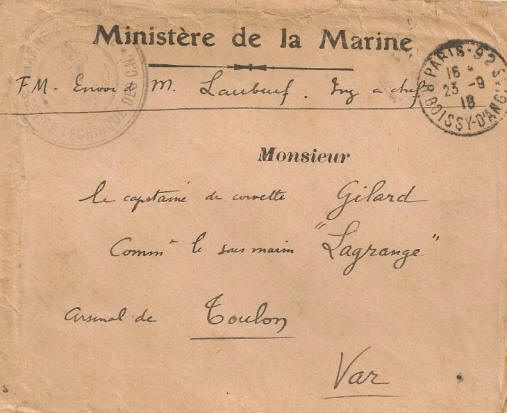 Ministère de la Marine
F.M. Envoi de M. Laubeuf. Ing en chef
PARIS·92
16
23 -9
18
R. BOISSY-D'ANG
TECHNIQUE DES
Monsieur
le capitaine de corvette Gilard
Commt le sous marin "Lagrange"
Arsenal de Toulon
Var